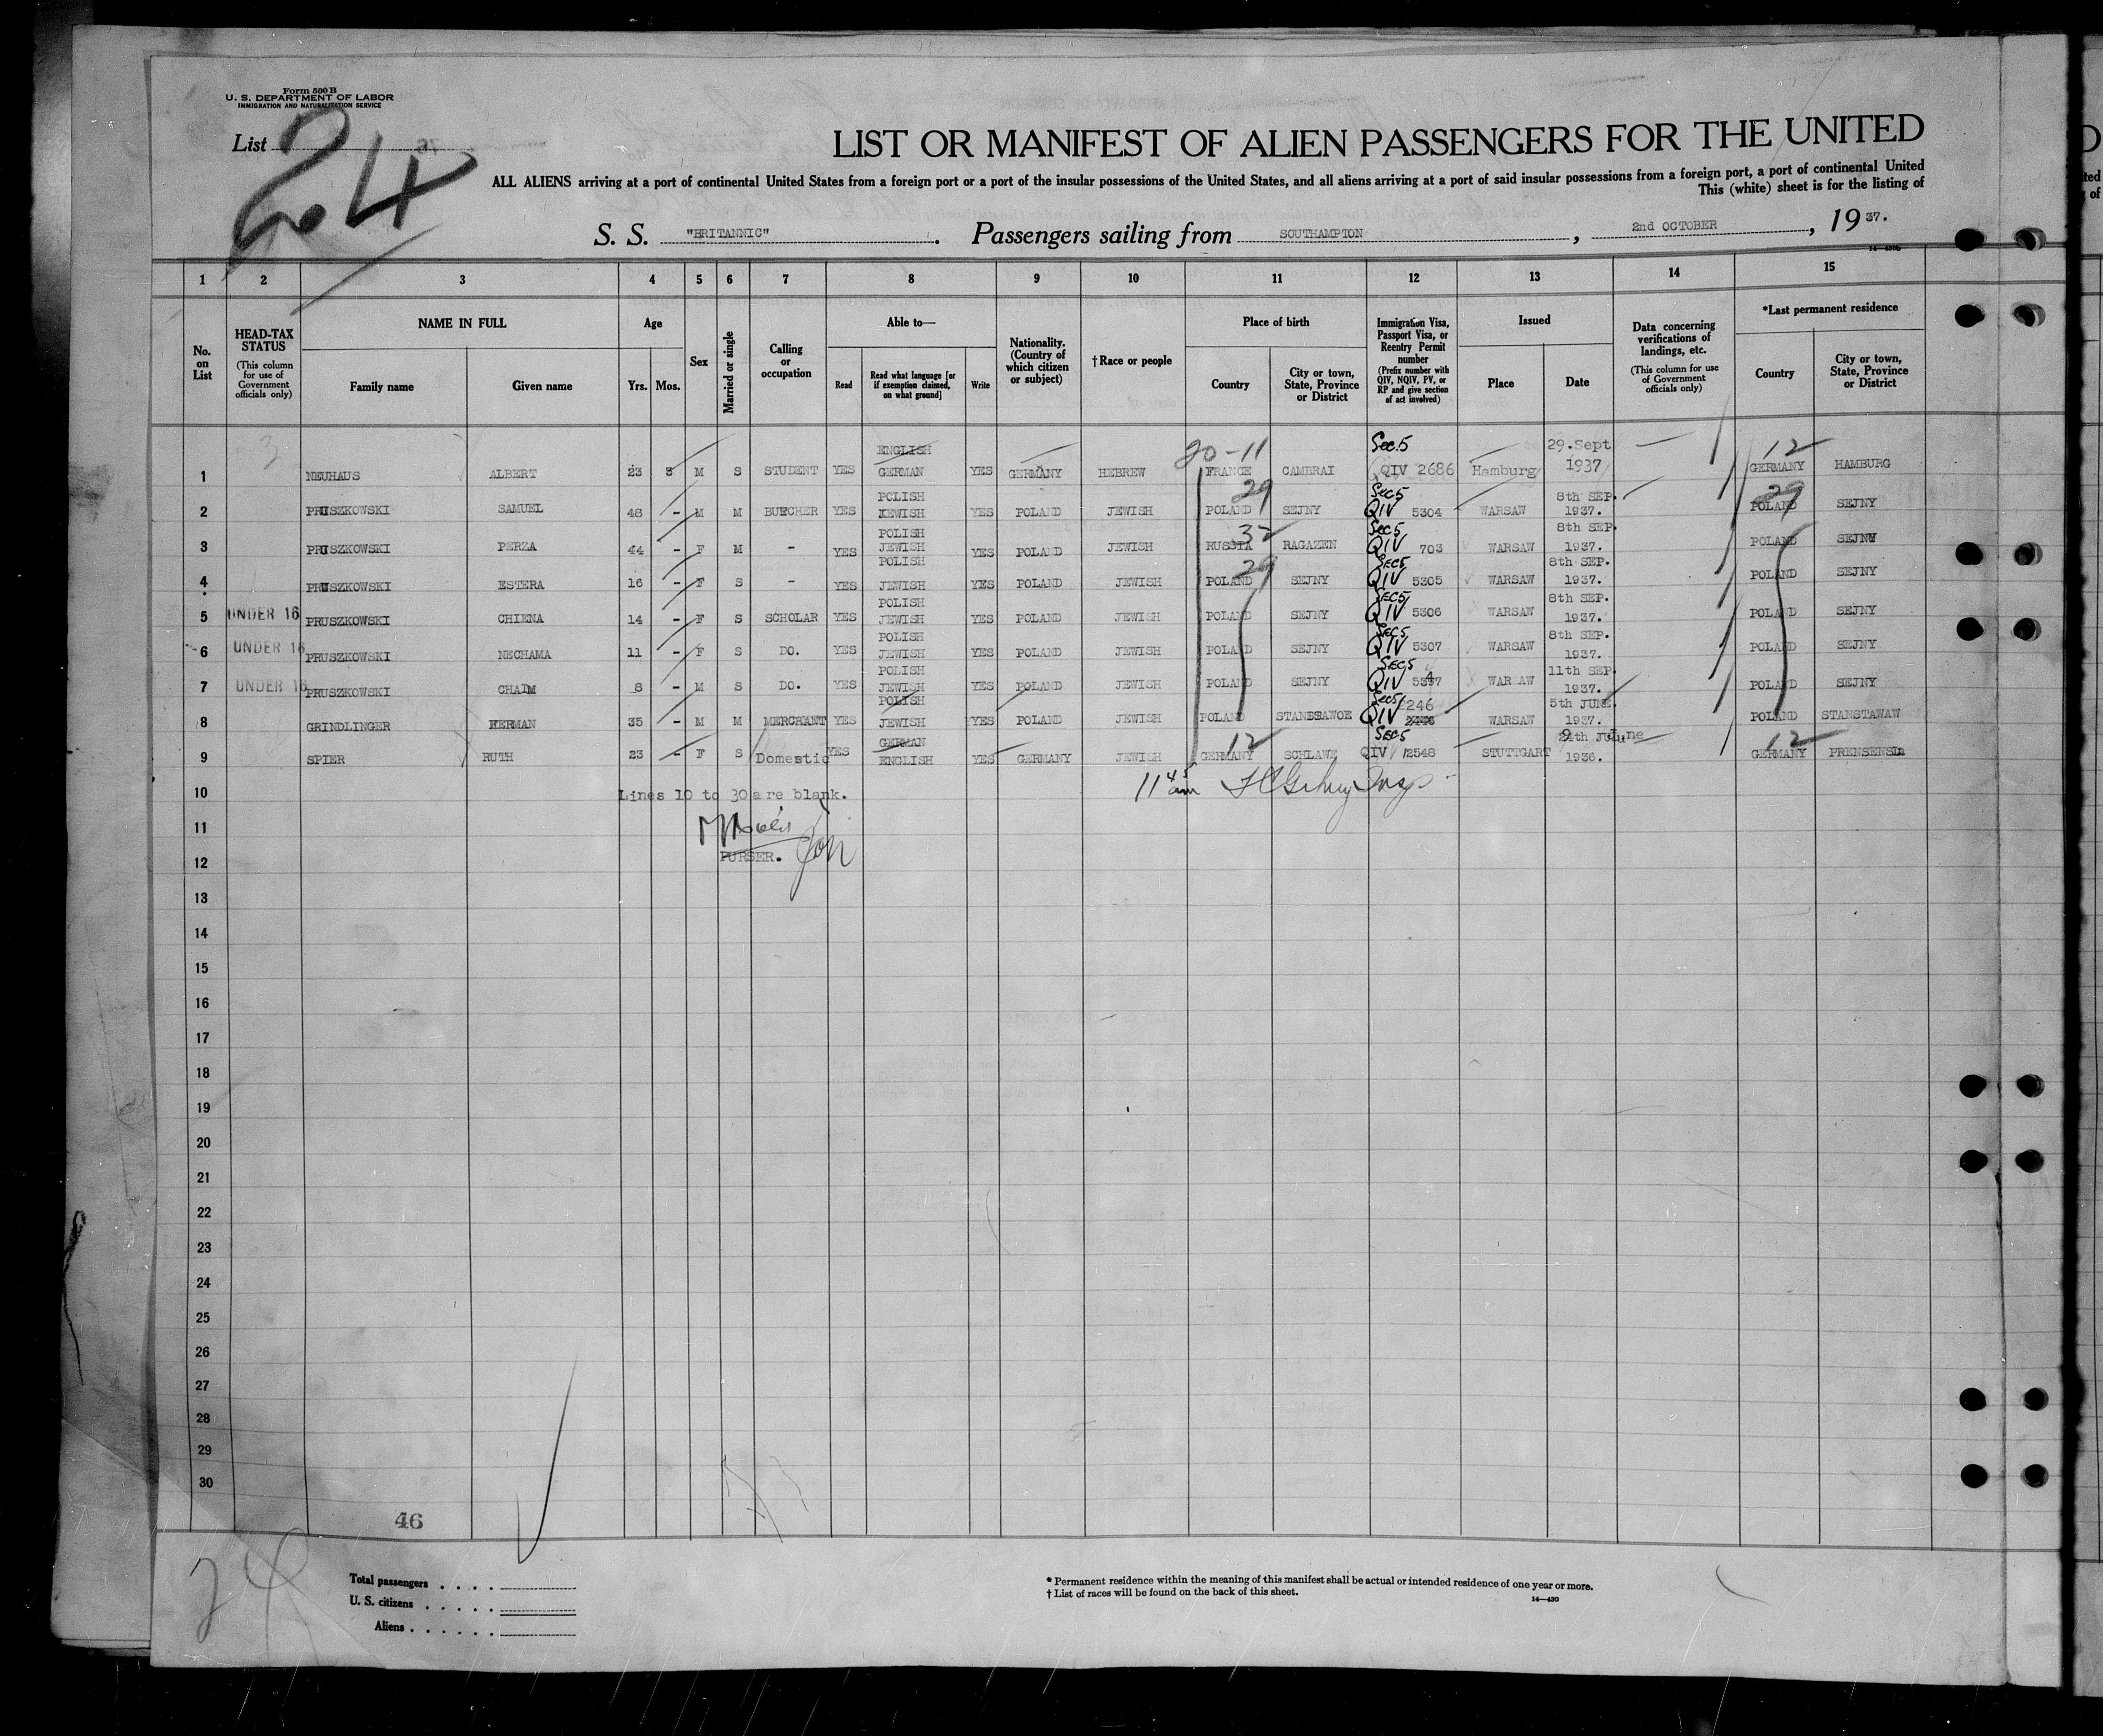 Form 500 B
U. S. DEPARTMENT OF LABOR
IMMIGRATION AND NATURALIZATION SERVICE
List 24
LIST OR MANIFEST OF ALIEN PASSENGERS FOR THE UNITED
ALL ALIENS arriving at a port of continental United States from a foreign port or a port of the insular possessions of the United States, and all aliens arriving at a port of said insular possessions from a foreign port, a port of continental United
This (white) sheet is for the listing of
S. S. "BRITANNIC". Passengers sailing from SOUTHAMPTON, 2nd OCTOBER, 1937.
1 2 3 4 5 6 7 8 9 10 11 12 13 14 15
No. on List
HEAD-TAX STATUS (This column for use of Government officials only)
NAME IN FULL
Family name Given name
Age
Yrs. Mos.
Sex
Married or single
Calling or occupation
Able to—
Read
Read what language [or if exemption claimed, on what ground]
Write
Nationality. (Country of which citizen or subject)
† Race or people
Place of birth
Country
City or town, State, Province or District
Immigration Visa, Passport Visa, or Reentry Permit number (Prefix number with QIV, NQIV, PV, or RP and give section of act involved)
Issued
Place Date
Data concerning verifications of landings, etc. (This column for use of Government officials only)
*Last permanent residence
Country
City or town, State, Province or District
3 ENGLISH 20-11 Sec.5 29.Sept 12
1 NEUHAUS ALBERT 23 M S STUDENT YES GERMAN YES GERMANY HEBREW FRANCE CAMBRAI QIV 2686 Hamburg 1937 GERMANY HAMBURG
POLISH 29 Sec5 8th SEP. 29
2 PRUSZKOWSKI SAMUEL 48 - M M BUTCHER YES JEWISH YES POLAND JEWISH POLAND SEJNY QIV 5304 WARSAW 1937. POLAND SEJNY
POLISH 32 Sec5 8th SEP.
3 PRUSZKOWSKI PERZA 44 - F M - YES JEWISH YES POLAND JEWISH RUSSIA RAGAZEN QIV 703 WARSAW 1937. POLAND SEJNY
POLISH 29 Sec5 8th SEP.
4 PRUSZKOWSKI ESTERA 16 - F S - YES JEWISH YES POLAND JEWISH POLAND SEJNY QIV 5305 WARSAW 1937. POLAND SEJNY
POLISH Sec5 8th SEP.
5 UNDER 16 PRUSZKOWSKI CHIENA 14 - F S SCHOLAR YES JEWISH YES POLAND JEWISH POLAND SEJNY QIV 5306 WARSAW 1937. POLAND SEJNY
POLISH Sec5 8th SEP.
6 UNDER 16 PRUSZKOWSKI NECHAMA 11 - F S DO. YES JEWISH YES POLAND JEWISH POLAND SEJNY QIV 5307 WARSAW 1937. POLAND SEJNY
POLISH Sec5 11th SEP.
7 UNDER 16 PRUSZKOWSKI CHAIM 8 - M S DO. YES JEWISH YES POLAND JEWISH POLAND SEJNY QIV WAR AW 1937. POLAND SEJNY
POLISH Sec5 246 5th JUNE
8 GRINDLINGER HERMAN 35 - M M MERCHANT YES JEWISH YES POLAND JEWISH POLAND QIV WARSAW 1937. POLAND STANSTAWAW
GERMAN 12 Sec5 June 12
9 SPIER RUTH 23 - F S Domestic YES ENGLISH YES GERMANY JEWISH GERMANY SCHLAWE QIV 12548 STUTTGART 1936. GERMANY
10 Lines 10 to 30 are blank. 11 45 am Insp
11
12 PURSER.
13
14
15
16
17
18
19
20
21
22
23
24
25
26
27
28
29
30
46
24
Total passengers . . . .
U. S. citizens . . . . .
Aliens . . . . . .
* Permanent residence within the meaning of this manifest shall be actual or intended residence of one year or more.
† List of races will be found on the back of this sheet.
14—430